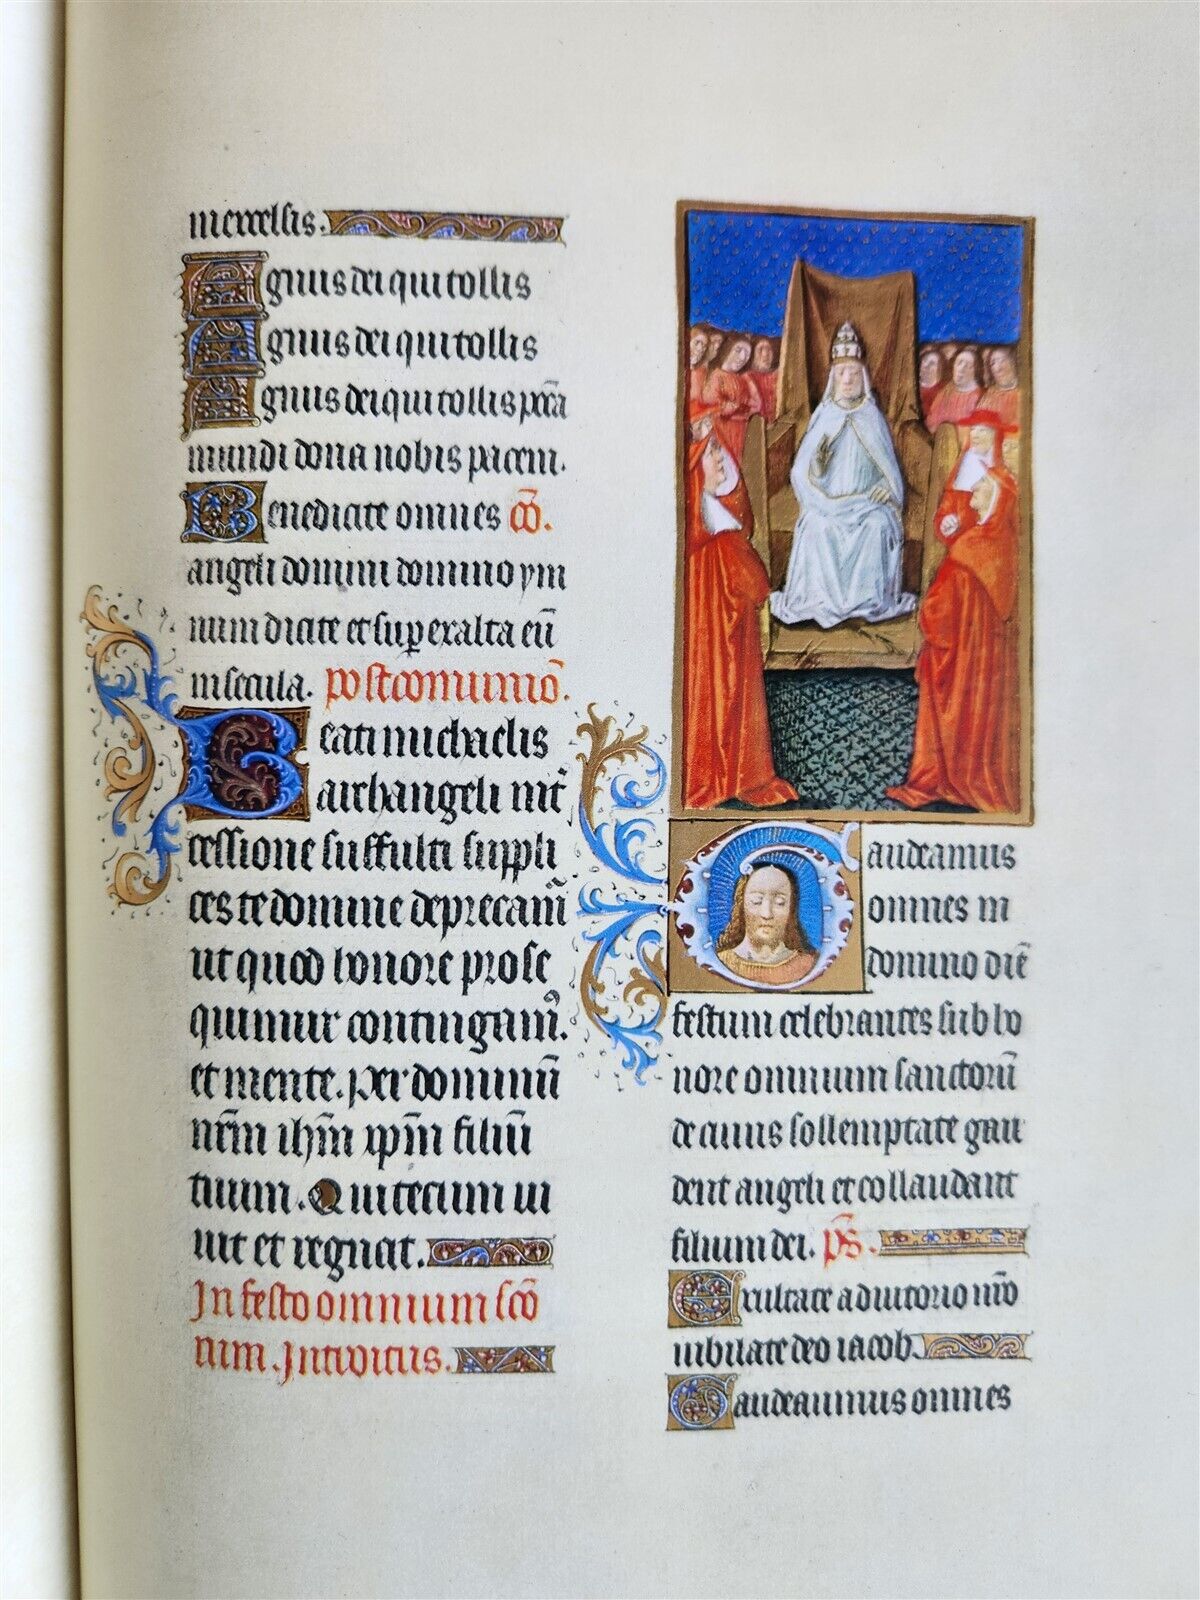 in excelsis.
Agnus dei qui tollis
Agnus dei qui tollis
Agnus dei qui tollis pccā
mundi dona nobis pacem.
Benedicite omnes cō.
angeli domini domino ym
num dicite et sup exalta eū
in secula. postcomuniō.
Beati michaelis
archangeli int
cessione suffulti suppli
ces te domine deprecam̄
ut quod honore prose
quimur contingam9.
et mente. per dominū
nr̄m ihm̄ xpm̄ filiū
tuum. Qui tecum ui
uit et regnat.
In festo omnium scō
rum. Introitus.
Gaudeamus
omnes in
domino diē
festum celebrantes sub ho
nore omnium sanctorū
de cuius sollemptate gau
dent angeli et collaudant
filium dei. ps̄.
Exultate adiutorio nr̄o
iubilate deo iacob.
Gaudeamus omnes